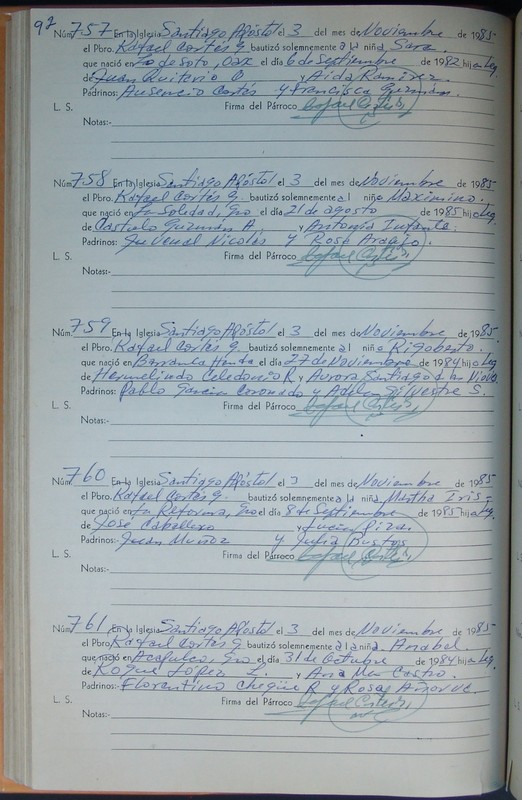 92
Núm. 757 En la Iglesia Santiago Apóstol el 3 del mes de Noviembre de 1985
el Pbro. Rafael Cortés G. bautizó solemnemente a la niña Sara
que nació en de Soto, Oax el día 6 de Septiembre de 1982 hija Leg.
de Juan Quiterio O y Aida Ramírez.
Padrinos: Ausencio Cortés y Francisca Guzmán.
L. S. Firma del Párroco Rafael Cortés
Notas:
Núm. 758 En la Iglesia Santiago Apóstol el 3 del mes de Noviembre de 1985
el Pbro. Rafael Cortés G. bautizó solemnemente al niño Maximino.
que nació en La Soledad, Gro el día 21 de agosto de 1985 hijo Leg.
de Castulo Guzmán A. y Antonia Infante.
Padrinos: Juvenal Nicolás y Rosa Araujo.
L. S. Firma del Párroco Rafael Cortés
Notas:
Núm. 759 En la Iglesia Santiago Apóstol el 3 del mes de Noviembre de 1985.
el Pbro. Rafael Cortés G. bautizó solemnemente al niño Rigoberto.
que nació en Barranca Honda el día 27 de Noviembre de 1984 hijo Leg
de Hermelindo Celedonio R y Aurora Santiago
Padrinos: Pablo García Coronado y Adela Silvestre S.
L. S. Firma del Párroco Rafael Cortés
Notas:
Núm. 760 En la Iglesia Santiago Apóstol el 3 del mes de Noviembre de 1985
el Pbro. Rafael Cortés G. bautizó solemnemente a la niña Martha Iris
que nació en La Reforma, Gro el día 8 de Septiembre de 1985 hija Leg.
de José Caballero y Lucía
Padrinos: Juan Muñoz y Julia Bustos
L. S. Firma del Párroco Rafael Cortés
Notas:
Núm. 761 En la Iglesia Santiago Apóstol el 3 del mes de Noviembre de 1985
el Pbro. Rafael Cortés G. bautizó solemnemente a la niña Anabel
que nació en Acapulco, Gro el día 31 de Octubre de 1984 hija Leg.
de Roque López L. y Ana Ma Castro.
Padrinos: Florentino R y Rosa Añorve.
L. S. Firma del Párroco Rafael Cortés
Notas: